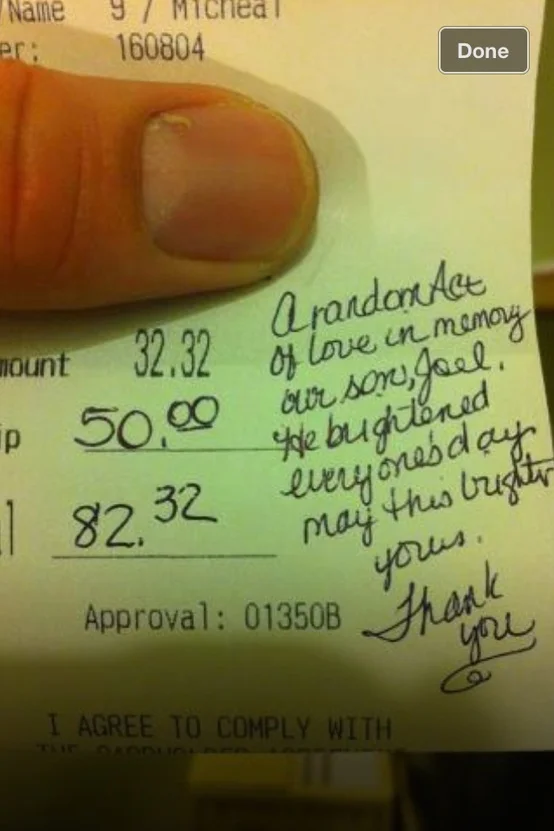 /Name 9 / Micheal
er: 160804
Done
mount 32.32
ip 50.00
l 82.32
A random Act
of love in memory
our son, Joel.
He brightened
everyone's day
may this brighten
yours.
Thank
you
Approval: 01350B
I AGREE TO COMPLY WITH
THE CARDHOLDER AGREEMENT